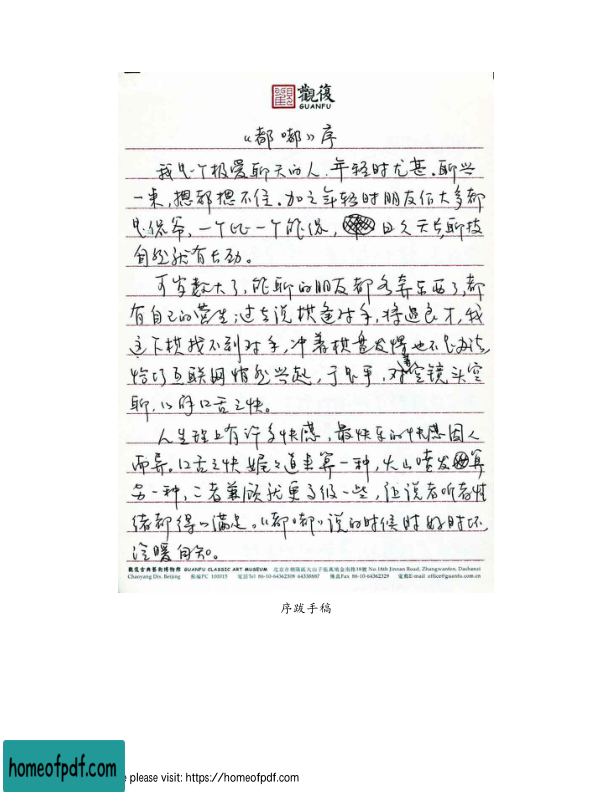 觀復
GUANFU
《都嘟》序
我是个极爱聊天的人，年轻时尤甚。聊兴
一来，摁都摁不住。加之年轻时朋友们大多都
是侃爷，一个比一个能侃，日久天长，聊技
自然就有长劲。
可岁数大了，能聊的朋友都各奔东西了，都
有自己的营生；过去说棋逢对手，将遇良才，我
这下棋找不到对手，冲着棋盘发愣也不是办法，
恰巧互联网悄然兴起，于是乎，对着空镜头空
聊，以解口舌之快。
人生理上有许多快感，最快乐的快感因人
而异。口舌之快娓娓道来算一种，火山喷发算
另一种，二者兼顾就更高级一些，让说者听者情
绪都得以满足。《都嘟》说的时候时好时坏，
冷暖自知。
觀復古典藝術博物館 GUANFU CLASSIC ART MUSEUM 北京市朝陽區大山子張萬墳金南路18號 No.18th Jinnan Road, Zhangwanfen, Dashanzi
Chaoyang Dis. Beijing 郵編PC 100015 電話Tel 86-10-64362309 64338887 傳真Fax 86-10-64362329 電郵E-mail office@guanfu.com.cn
序跋手稿
homeofpdf.com
e please visit: https://homeofpdf.com